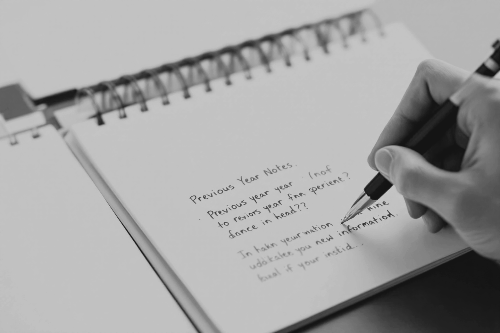 Previous Year Notes.
. Previous year year (nof
to revions year fnn perient?
dance in head??
In hakn yeur nation nine
udakaleu you new information
bual if your instid...